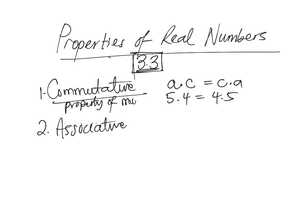 Properties of Real Numbers
3.3
1. Commutative a.c = c.a
property of mu 5.4 = 4.5
2. Associative